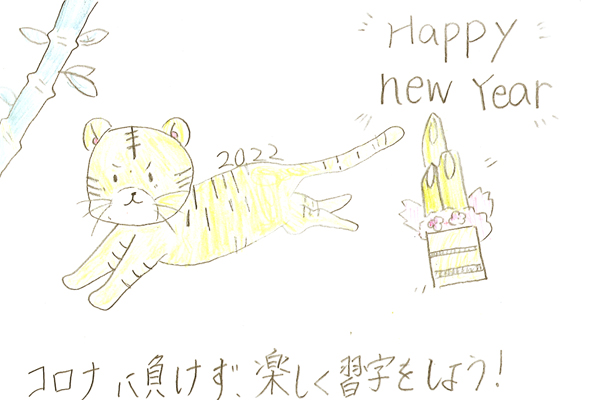 Happy
new Year
2022
コロナに負けず、楽しく習字をしよう!